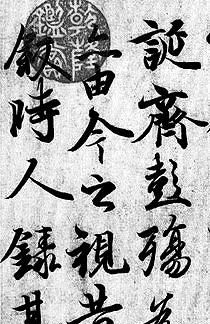 誕齊彭殤為
亦由今之視昔
敘時人錄其
乾隆鑑賞